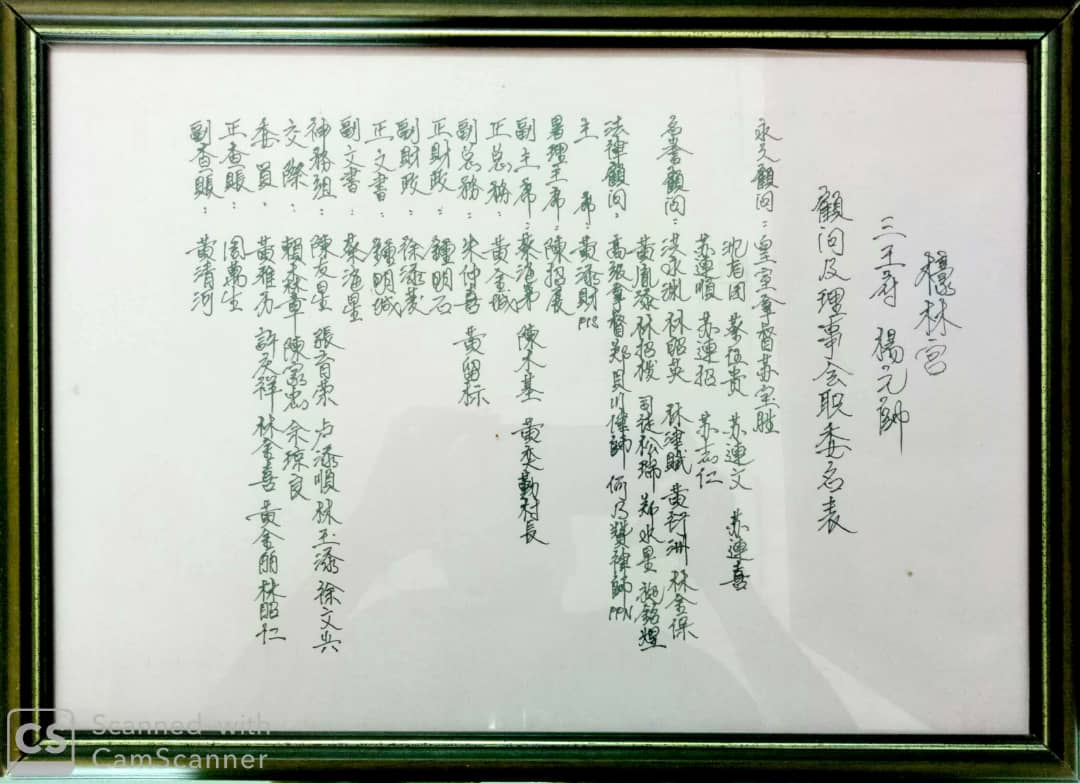 檺林宮
三王府 楊元帥
顧问及理事会职委名表
永久顧问：皇室拿督苏宝胜
沈君国 蔡伍贵 苏連文 苏連喜
苏連順 苏連招 苏志仁
名誉顧问：洪水渊 林昭英 林津賦 黄訂洲 林金保
黄廣添 林招拨 司徒松瑞 郑水景 銘煌
法律顧问：高級拿督郑貝川律師 何乃贊律師PPN
主 席：黄添財PIS
署理主席：陳招展
副主席：蔡海弟 陳木基 黄奕勤村長
正总務：黄金城
副总務：朱仲喜 黄留标
正財政：鍾明石
副財政：徐添茂
正文書：鍾明城
副文書：蔡海星
神務组：陳友星 張育荣 卢添順 林玉添 徐文兴
交 際：賴森章 陳家忠 余琼良
委 員：黄雅芳 許天祥 林金喜 黄金丽 林昭仁
正查賬：周萬生
副查賬：黄清河
CS Scanned with
CamScanner